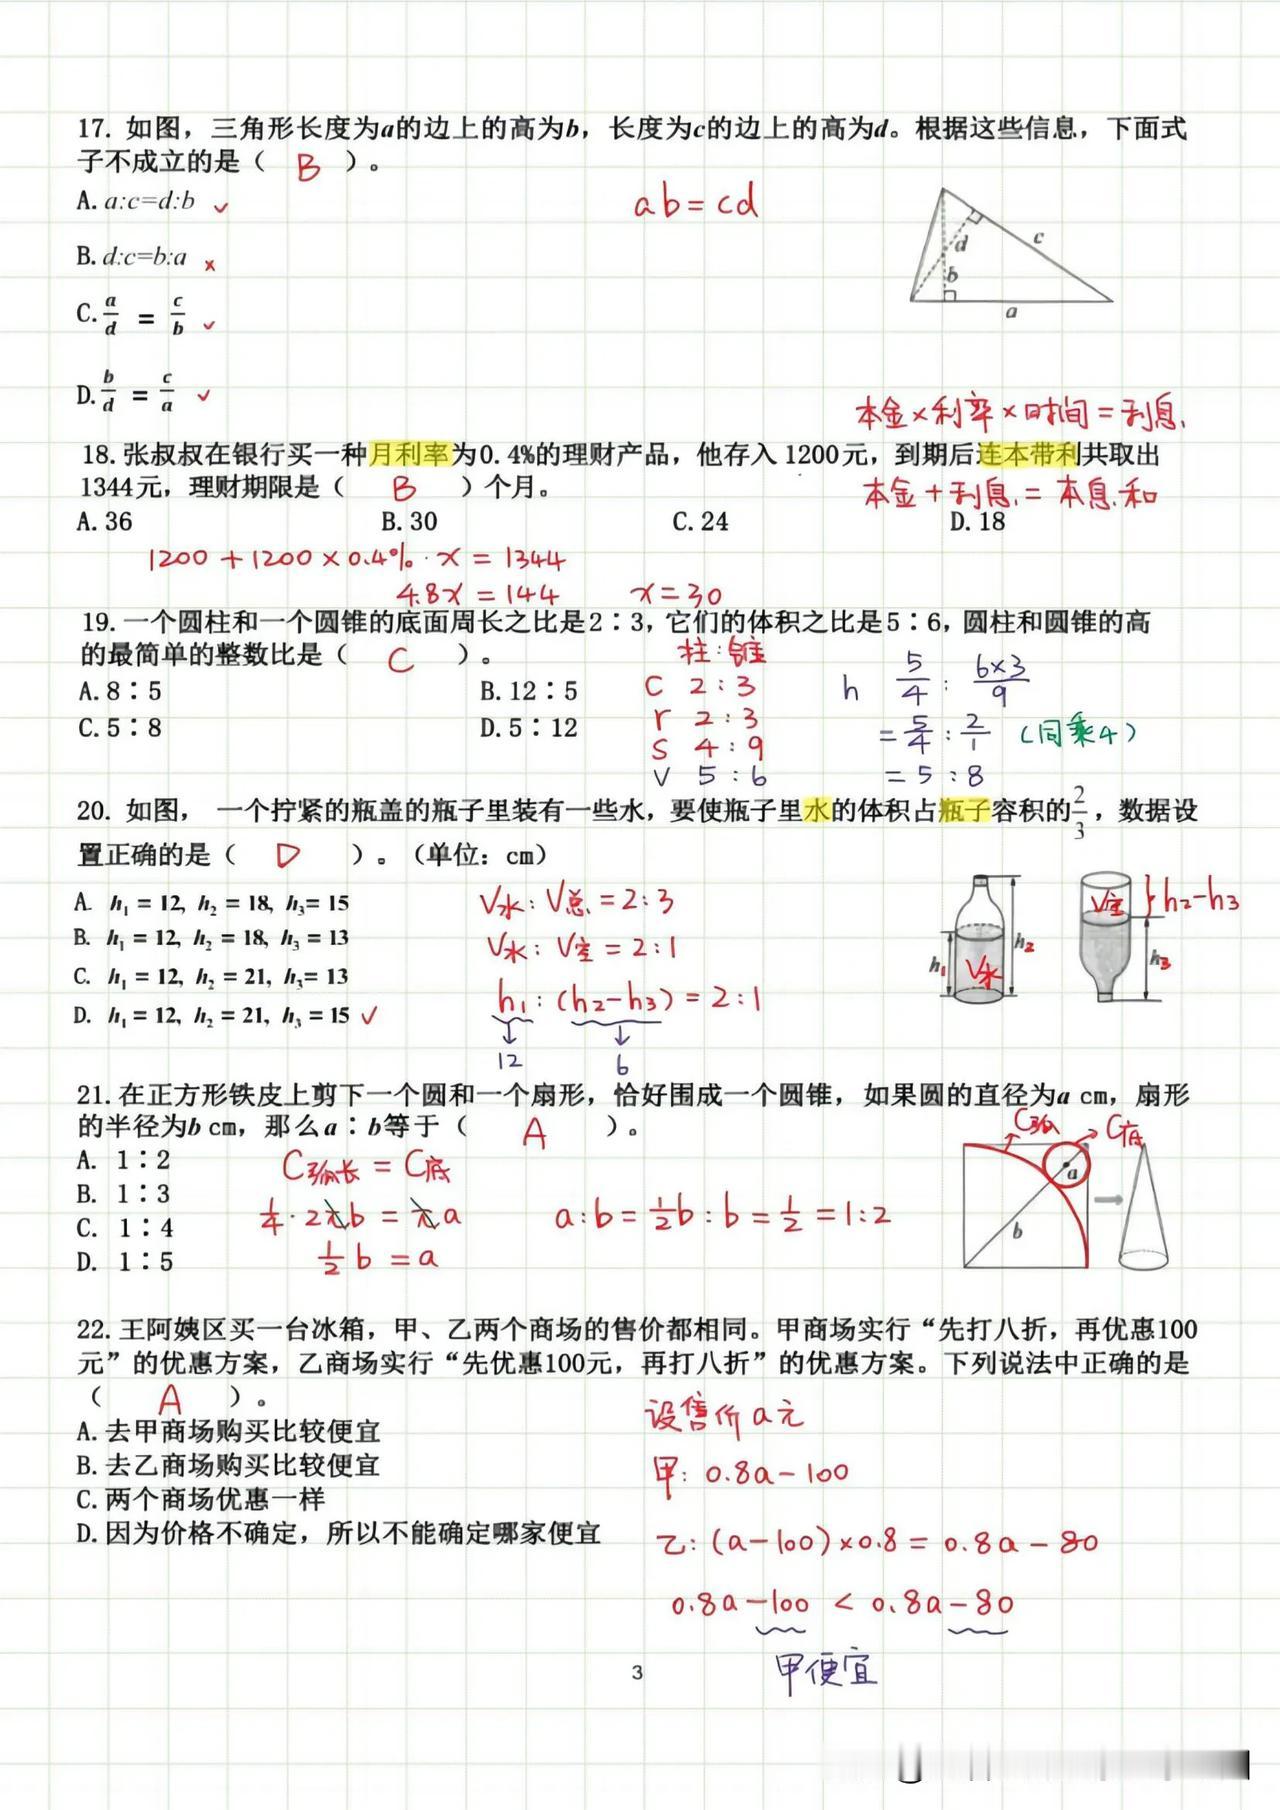 17. 如图，三角形长度为a的边上的高为b，长度为c的边上的高为d。根据这些信息，下面式
子不成立的是（ B ）。
A. a:c=d:b ✓
ab=cd
B. d:c=b:a ×
C. a/d = c/b ✓
D. b/d = c/a ✓
d
c
b
a
本金×利率×时间=利息
18. 张叔叔在银行买一种月利率为0.4%的理财产品，他存入1200元，到期后连本带利共取出
1344元，理财期限是（ B ）个月。
本金+利息=本息和
A. 36 B. 30 C. 24 D. 18
1200+1200×0.4%·x=1344
4.8x=144 x=30
19. 一个圆柱和一个圆锥的底面周长之比是2∶3，它们的体积之比是5∶6，圆柱和圆锥的高
的最简单的整数比是（ C ）。
A. 8∶5 B. 12∶5
C. 5∶8 D. 5∶12
柱:锥
C 2:3
r 2:3
S 4:9
V 5:6
h 5/4 : 6×3/9
=5/4 : 2/1 (同乘4)
=5:8
20. 如图， 一个拧紧的瓶盖的瓶子里装有一些水，要使瓶子里水的体积占瓶子容积的2/3，数据设
置正确的是（ D ）。（单位：cm）
A. h₁=12, h₂=18, h₃=15
B. h₁=12, h₂=18, h₃=13
C. h₁=12, h₂=21, h₃=13
D. h₁=12, h₂=21, h₃=15 ✓
V水:V总=2:3
V水:V空=2:1
h₁:(h₂-h₃)=2:1
12 6
h₁
V水
h₂
V空
h₂-h₃
h₃
21. 在正方形铁皮上剪下一个圆和一个扇形，恰好围成一个圆锥，如果圆的直径为a cm，扇形
的半径为b cm，那么a∶b等于（ A ）。
A. 1∶2
B. 1∶3
C. 1∶4
D. 1∶5
C弧长=C底
1/4·2πb=πa
1/2b=a
a:b=1/2b:b=1/2=1:2
C弧
C底
a
b
22. 王阿姨区买一台冰箱，甲、乙两个商场的售价都相同。甲商场实行“先打八折，再优惠100
元”的优惠方案，乙商场实行“先优惠100元，再打八折”的优惠方案。下列说法中正确的是
（ A ）。
A. 去甲商场购买比较便宜
B. 去乙商场购买比较便宜
C. 两个商场优惠一样
D. 因为价格不确定，所以不能确定哪家便宜
设售价a元
甲: 0.8a-100
乙: (a-100)×0.8=0.8a-80
0.8a-100<0.8a-80
甲便宜
3